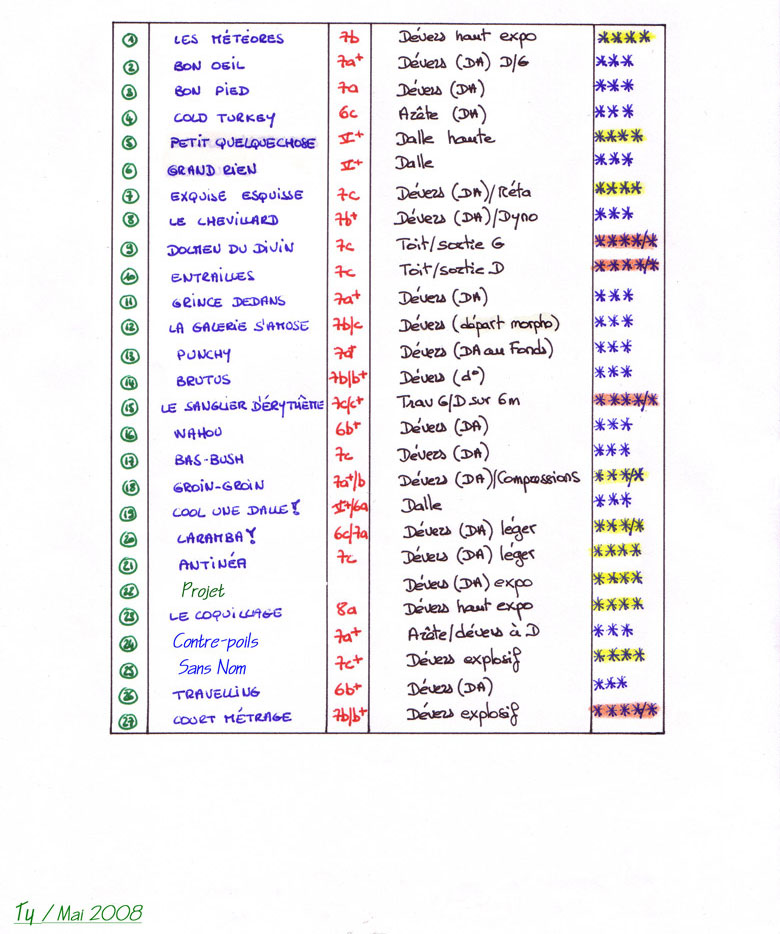 1 LES MÉTÉORES 7b Dévers haut expo ****
2 BON OEIL 7a+ Dévers (DA) D/G ***
3 BON PIED 7a Dévers (DA) ***
4 COLD TURKEY 6c Arête (DA) ***
5 PETIT QUELQUECHOSE V+ Dalle haute ****
6 GRAND RIEN V+ Dalle ***
7 EXQUISE ESQUISSE 7c Dévers (DA)/Réta ****
8 LE CHEVILLARD 7b+ Dévers (DA)/Dyno ***
9 DOLMEN DU DIVIN 7c Toit/sortie G ****/*
10 ENTRAILLES 7c Toit/sortie D ****/*
11 GRINCE DEDANS 7a+ Dévers (DA) ***
12 LA GALERIE S'AMOSE 7b/c Dévers (départ morpho) ***
13 PUNCHY Dévers (DA au Fonds) ***
14 BRUTUS 7b/b+ Dévers (d°) ***
15 LE SANGLIER D'ÉRYTHÈME 7c/c+ Trav G/D sur 6m ****/*
16 WAHOU 6b+ Dévers (DA) ***
17 BAS-BUSH 7c Dévers (DA) ***
18 GROIN-GROIN 7a+/b Dévers (DA)/Compressions ***/*
19 COOL UNE DALLE! V+/6a Dalle ***
20 CARAMBA! 6c/7a Dévers (DA) léger ***/*
21 ANTINÉA 7c Dévers (DA) léger ****
22 Projet Dévers (DA) expo ****
23 LE COQUILLAGE 8a Dévers haut expo ****
24 Contre-poils 7a+ Arête/dévers à D ***
25 Sans Nom 7c+ Dévers explosif ****
26 TRAVELLING 6b+ Dévers (DA) ***
27 COURT MÉTRAGE 7b/b+ Dévers explosif ****/*
Ty / Mai 2008